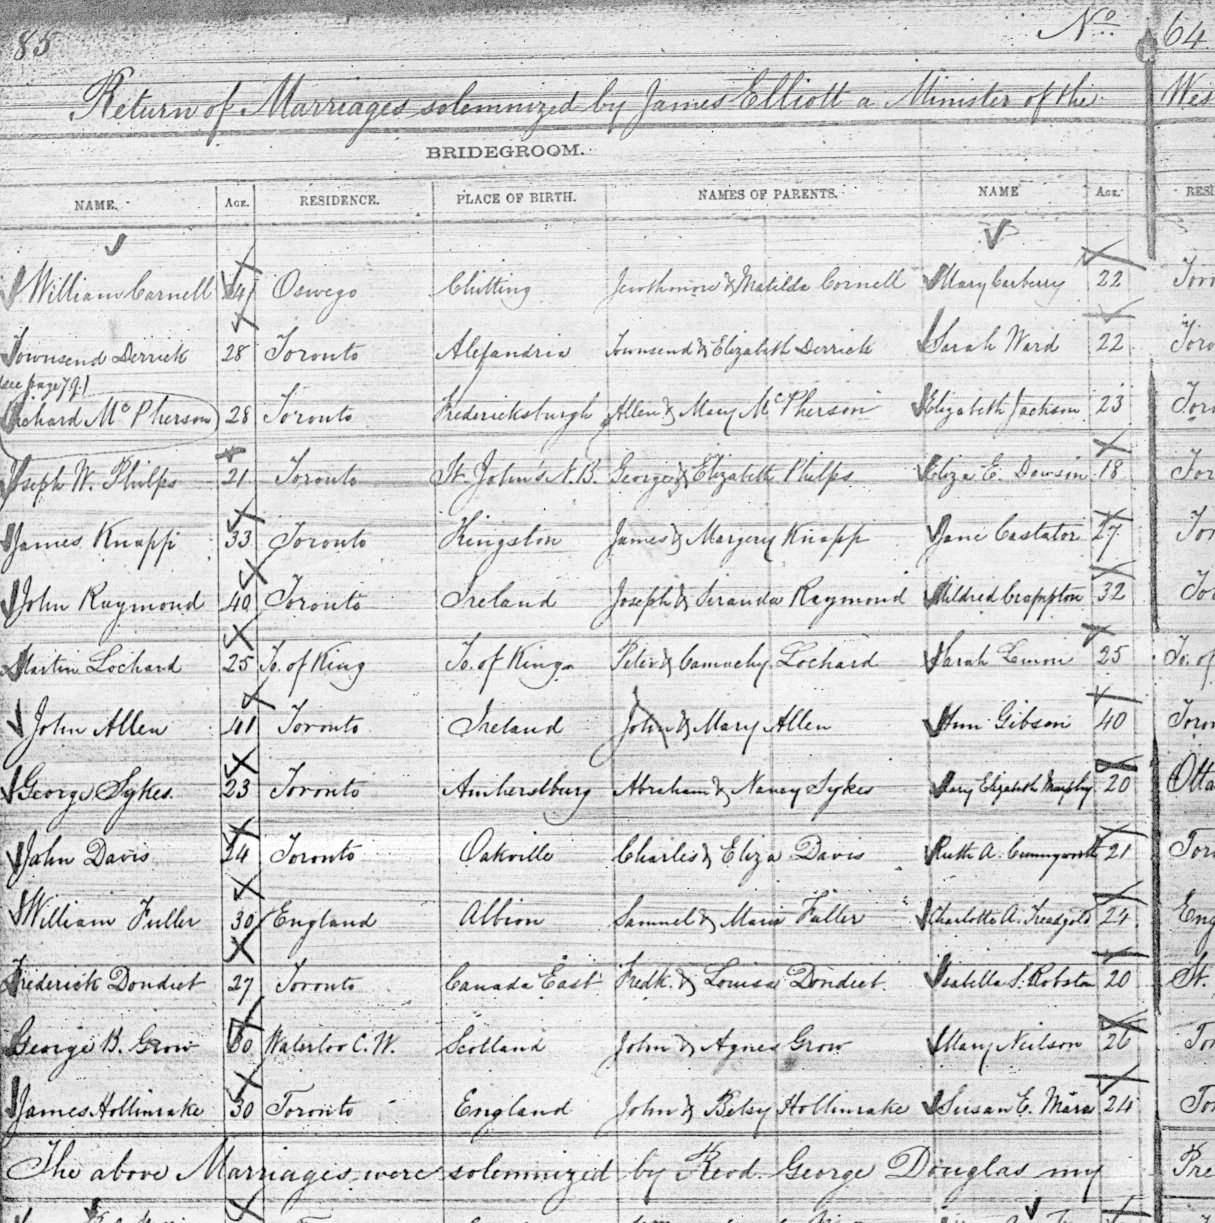 85 No. 64
Return of Marriages solemnized by James Elliott a Minister of the Wes
BRIDEGROOM.
NAME. AGE. RESIDENCE. PLACE OF BIRTH. NAMES OF PARENTS. NAME AGE. RESI
William Carnell 24 Oswego Chitting & Matilda Cornell Mary Carberry 22 Toro
Townsend Derrick 28 Toronto Alexandria Townsend & Elizabeth Derrick Sarah Ward 22 Toro
(see page 79.)
Richard McPherson 28 Toronto Fredericksburgh Allen & Mary McPherson Elizabeth Jackson 23 Toro
Joseph W. Philps 21 Toronto St. John's N.B. George & Elizabeth Philps Eliza E. Dawson 18 Tor
James Knapp 33 Toronto Kingston James & Margery Knapp Jane Castator 27 Tor
John Raymond 40 Toronto Ireland Joseph & Raymond Mildred Crompton 32 Tor
Martin Lochard 25 To. of King To. of King Peter & Lochard Sarah Lemon 25 To. of
John Allen 41 Toronto Ireland John & Mary Allen Ann Gibson 40 Toron
George Sykes. 23 Toronto Amherstburg Abraham & Nancy Sykes Mary Elizabeth Murphy 20 Otta
John Davis 24 Toronto Oakville Charles & Eliza Davis Ruth A. 21 Toro
William Fuller 30 England Albion Samuel & Maria Fuller Charlotte A. Treadgold 24 Eng
Frederick Dondiet 27 Toronto Canada East Fredk. & Louisa Dondiet Isabella S. Robston 20 St.
George B. Grow 60 Waterloo C.W. Scotland John & Agnes Grow Mary Neilson 26 Tor
James Hollinrake 30 Toronto England John & Betsy Hollinrake Susan E. Mara 24 Tor
The above Marriages were solemnized by Revd. George Douglas my Pre